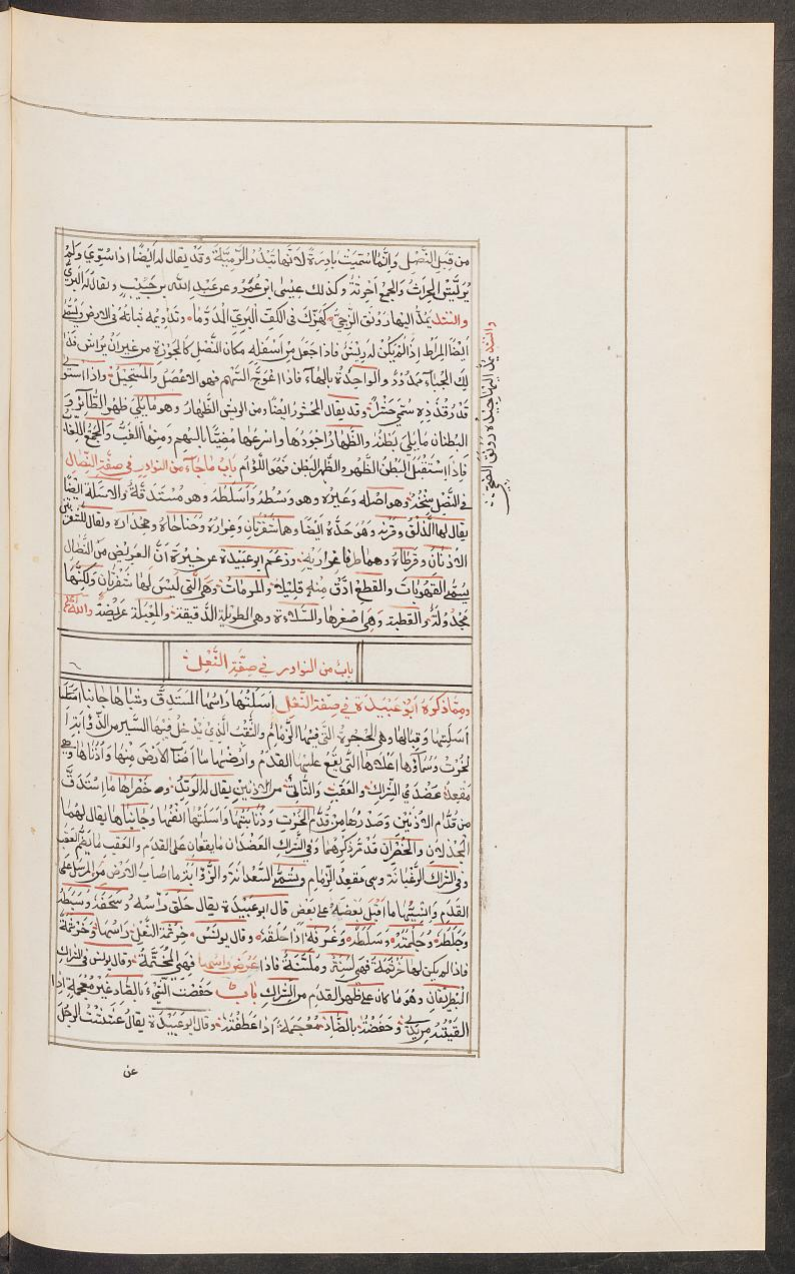 من قبل النصل وانما سميت بادرة لانها تبذر الرمية وقد يقال له ايضا اذا سوي ولم
يرلش الحراث والجمع احرثة وكذلك عيسى ابن عمرو وعن عبد الله بن حبيب ويقال له البري
والنند يمد البهار ونق الزجى كفرك فى الكف البري المدوما وتدويمه نباته فى الارض ويسمى
ايضا المراط اذا لم يكن له ريش فاذا جعل من اسفله مكان النصل كالجوزة من غير ان يراش فذا
لك الجباء ممدود والواحدة بالهاء فاذا اعوج السهم فهو الاعصل والمستحيل واذا استوت
قدر قذذه سمي حشل وقد يقال المحشور ايضا ومن الريش الظهار وهو ما يلي ظهر الطائر و
البطنان ما يلى بطنه والظهار اجودها واسرعها مضيا بالسهم ومنها اللغب والجمع اللغاب
فاذا استقبل البطن الظهر والظهر البطن فهو اللؤام باب ما جاء من النوادر في صفة النصال
فى النصل سنخه وهو اصله وعيره وهو وسطه واسلطه وهو مستدقه والاسلة ايضا
يقال لها الذلق وقرنه وهو حده ايضا وهما شفرتان وغراره وجناحاه وحجداره ويقال للشفرتين
الاذنان وقرطاه وهما طرفا غراريه وزعم ابو عبيدة عن خيرة ان العريض من النصال
يسمى القهوبات والقطع ادق منه قليلا والمرمات وهي التى ليس لها شفرتان ولكنها
مجدولة والقطبة وهي اصغرها والسلاءة وهى الطويلة الدقيقة والمعبلة عريضة والله اعلم
باب من النوادر في صفة النعل
ومما ذكره ابو عبيدة في صفة النعل اسلتها راسها المستدق وشباها جانبا
اسلتها وقبالها وهي الحجزة التى فيها الزمام والثقب الذي يدخل فيها السير من الذوابة
لخرت وسماؤها اعلاها التى يقع عليها القدم وارضها ما اصاب الارض منها واذناها وهي
مقعد عضدي الشراك والعقب والثاني من الاذنين يقال له الوتد وخصراها ما استدق
من قدام الاذنين وصدرها من قدام الخرت وذنابتها واسلتها انفها وجانباها يقال لهما
الجدلان والخصران قد مر ذكرهما وفي الشراك العضدان ما يقعان على القدم والعقب ما يضم العقب
وفى الشراك الرغبانة وهى مقعد الزمام وتسمى السعدانة والزوابة ما اصاب الارض من المرسل على
القدم واثنيتها ما اقبل بعضه على بعض قال ابو عبيدة يقال حلق راسه وسحفه وسبطه
وجلطه وجلمته وسلطه وغرفه اذا حلقه وقال يونس خرثمة النعل راسها وخرثمة
فاذا لم يكن لها خرثمة فهى لسنة وملسنة فاذا عرض راسها فهى المخثمة وقال يونس فى الشراك
البطريقان وهو ما كان على ظهر القدم من الشراك باب حفصت الشيء بالصاد غير معجمة اذا
القيته من يدك وحفضته بالضاد معجمة اذا عطفته وقال ابو عبيدة يقال عنشت الرجل
عن